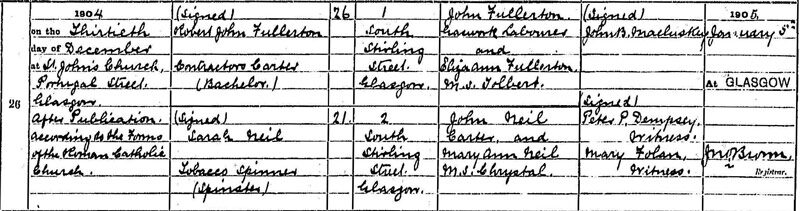 26
1904
on the Thirtieth
day of December
at St. John's Church,
Portugal Street.
Glasgow.
After Publication
according to the Forms
of the Roman Catholic
Church.
(Signed)
Robert John Fullerton
Contractors Carter
(Bachelor.)
(Signed)
Sarah Neil
Tobacco Spinner
(Spinster)
26
21.
1
South
Stirling
Street
Glasgow.
2
South
Stirling
Street.
Glasgow.
John Fullerton.
Gaswork Labourer
and
Eliza Ann Fullerton.
M.S. Tolbert.
John Neil
Carter, and
Mary Ann Neil
M.S. Chrystal.
(Signed)
John B. Macluskey
(Signed)
Peter P. Dempsey,
Witness.
Mary Folan,
Witness.
1905,
January 5th
At GLASGOW
Jno Brown
Registrar.